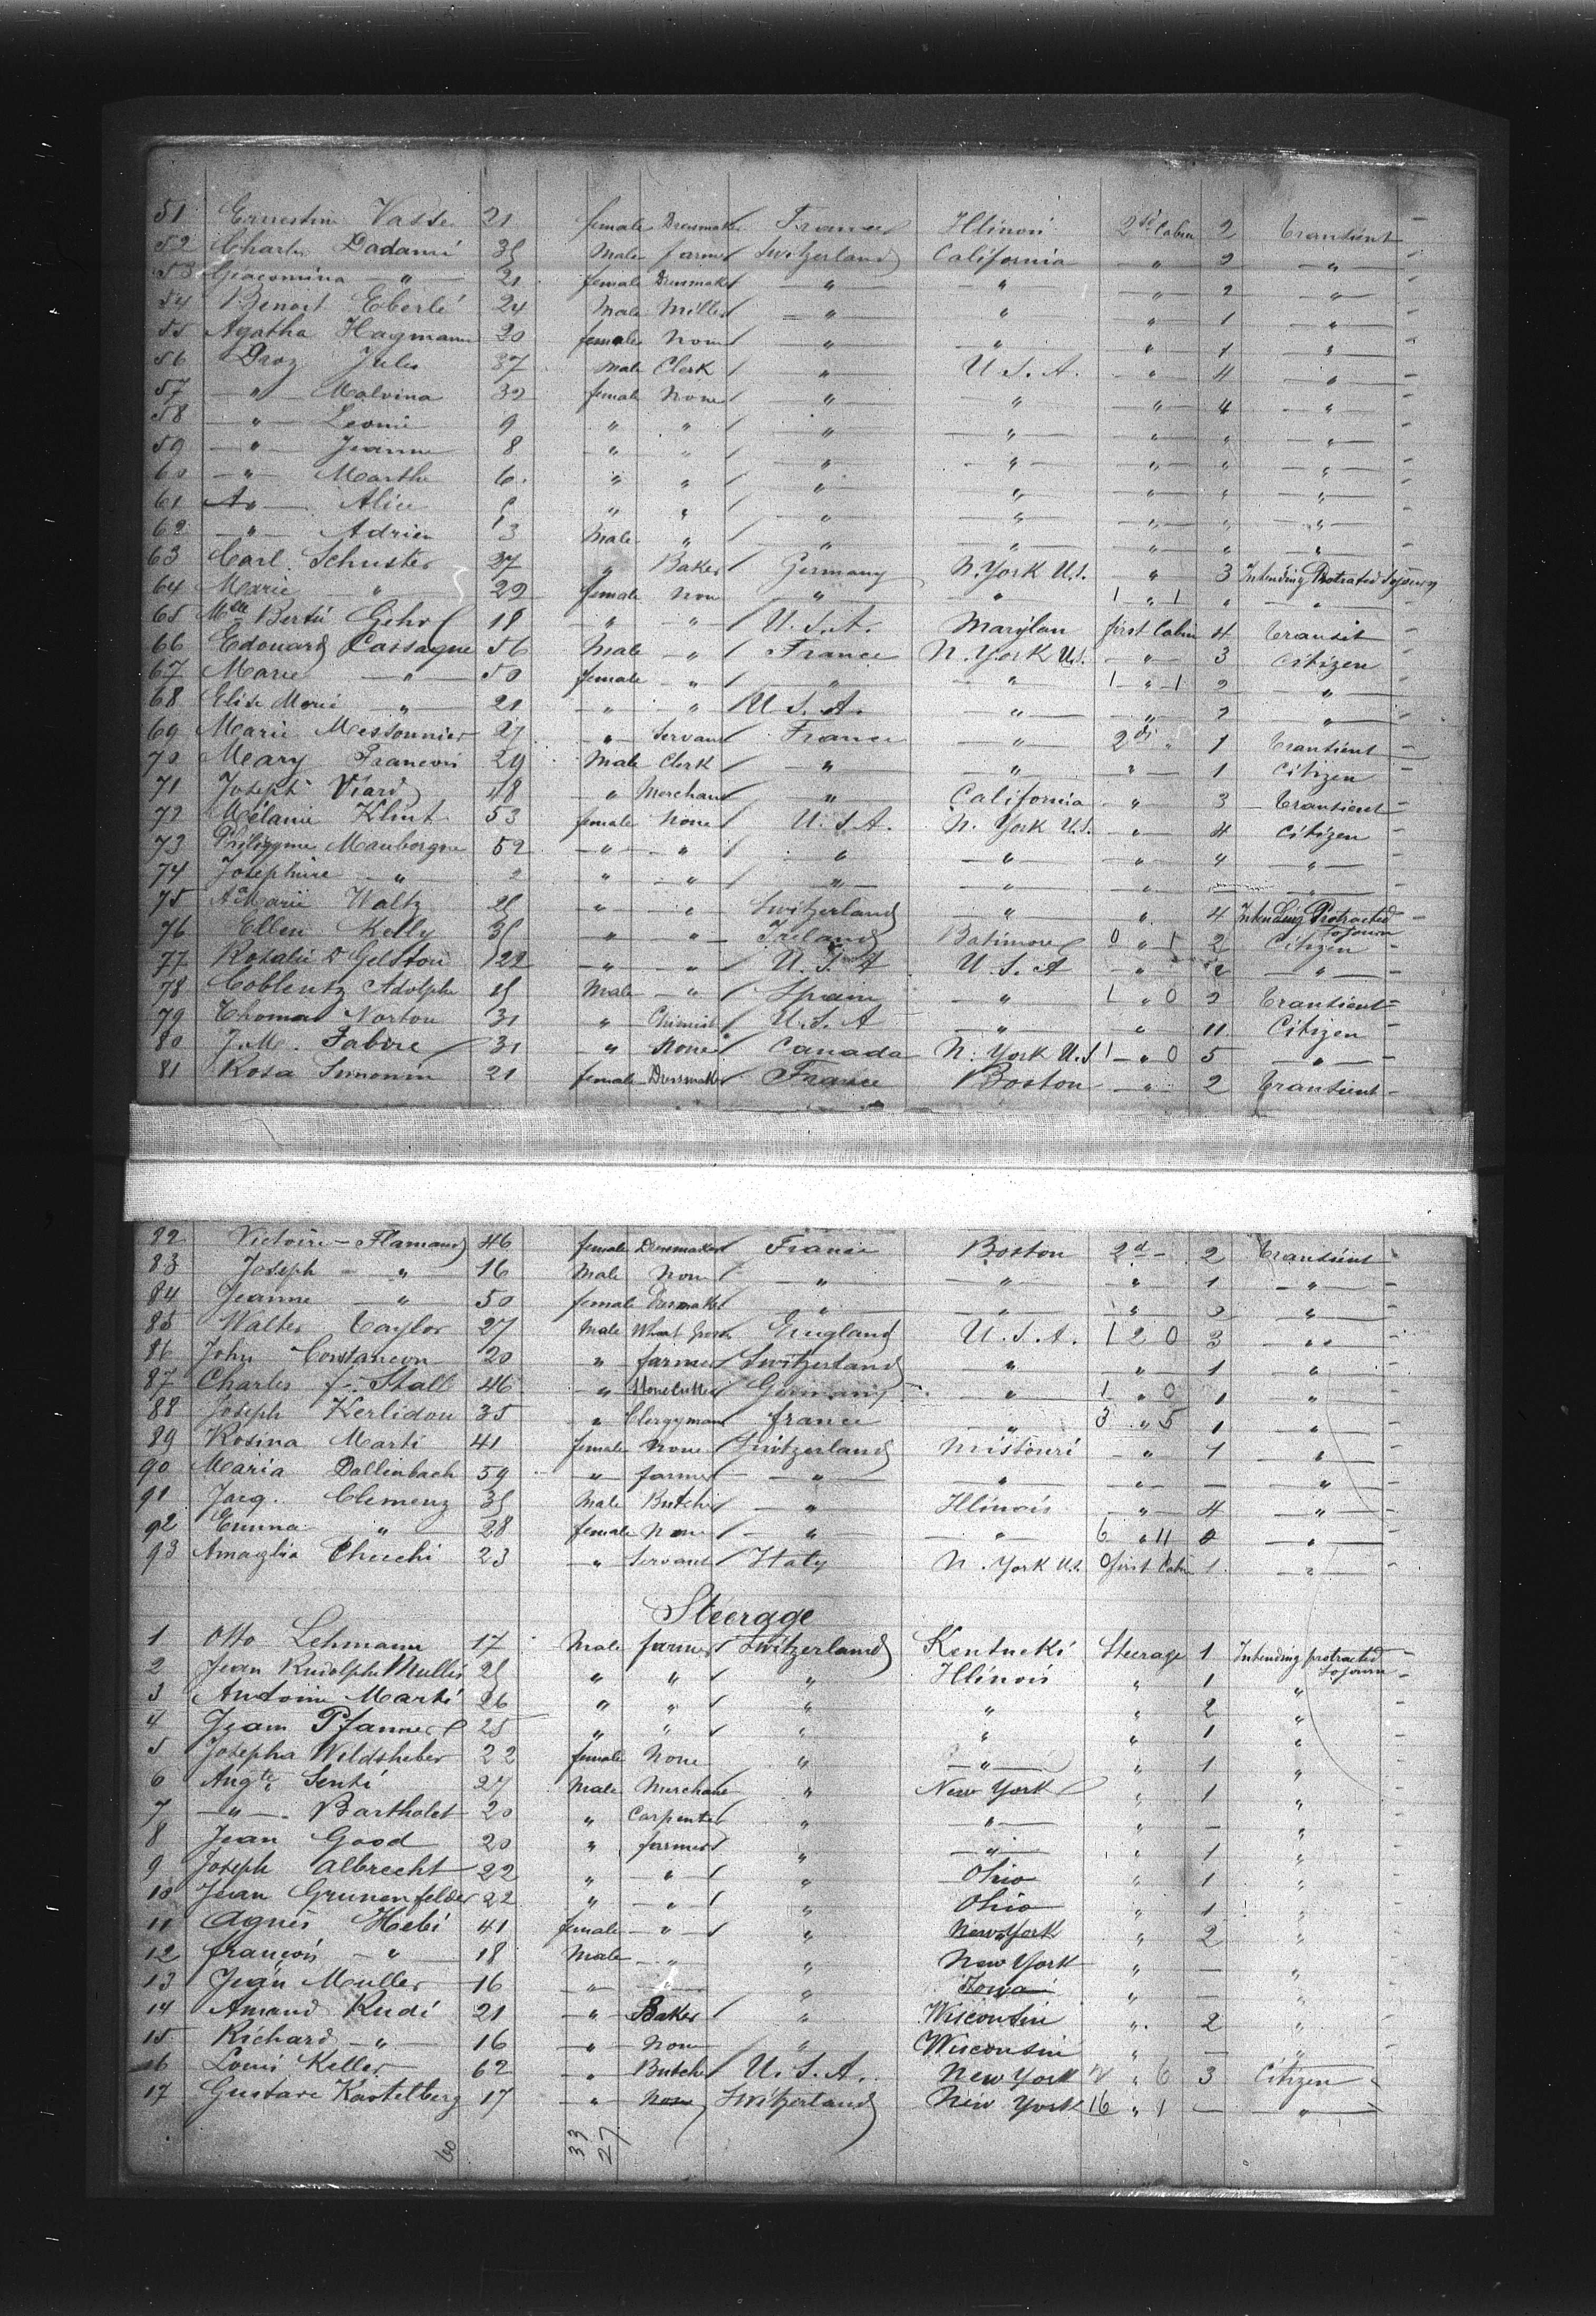 51 Ernestine Vasse 21 female Dressmaker France Illinois 2d Cabin 2 transient -
52 Charles Dadami 35 Male farmer Switzerland California " 2 " -
53 Giacomina " 21 female Dressmaker " " " 2 " -
54 Benoit Eberlé 24 Male Miller " " " 1 " -
55 Agatha Hagmann 20 female None " " " 1 " -
56 Droz Jules 37 male Clerk " U.S.A. " 4 " -
57 " Malvina 32 female None " " " 4 " -
58 " Leonie 9 " " " " " " " -
59 " Jeanne 8 " " " " " " " -
60 " Marthe 6 " " " " " " " -
61 " Alice " " " " " " " -
62 " Adrien 3 Male " " " " " " -
63 Carl Schuster 37 " Baker Germany N. York U.S. " 3 Intending Protracted Sojourn
64 Marie " 29 female non " " 1 " 1 " " -
65 Mlle Bertii Gehr 18 " " U.S.A. Marylan first Cabin 4 transit -
66 Edouard Cassagne 56 Male " France N. York U.S. " 3 Citizen -
67 Marie " 50 female " " " 1 " 1 2 " -
68 Elise Marie " 21 " " U.S.A. " " 2 " -
69 Marie Messonnier 27 " Servant France " 2d " 1 transient -
70 Mary Francois 29 Male Clerk " " " 1 Citizen -
71 Joseph Viard 48 " Merchant " California " 3 transient -
72 Mélanie Klint 53 female None U.S.A. N. York U.S. " 4 Citizen -
73 Mauborgne 52 " " " " " 4 " -
74 Josephine " 2 " " " " " - " -
75 Aa Marie Waltz 25 " " Switzerland " " 4 Intending Protracted Sojourn -
76 Ellen Kelly 35 " " Ireland Batimore 0 " 1 2 Citizen -
77 Rosalie D Gelston 22 " " U.S.A U.S.A " 2 " -
78 Coblentz Adolphe 25 Male " Spain " 1 " 0 2 transient -
79 Thomas Norton 31 " Chimist U.S.A " " 11 Citizen -
80 J.M. Fabire 31 " None Canada N. York U.S 1 " 0 5 " -
81 Rosa Simonin 21 female Dressmaker France Boston " 2 transient -
82 Victoire - Flamand 46 female Dressmaker France Boston 2d - 2 transient -
83 Joseph " 16 Male Non " " " 1 " -
84 Jeanne " 50 female Dressmaker " " " 2 " -
85 Walter Taylor 27 Male England U.S.A. 1 2 0 3 " -
86 John Constancon 20 " farmer Switzerland " 1 " -
87 Charles f. Stall 46 " Stonecutter Germany " 1 " 0 1 " -
88 Joseph Kerlidou 35 " Clergyman france " 3 " 5 1 " -
89 Rosina Marti 41 female None Switzerland Missouri " 1 " -
90 Maria Dallinbach 59 " farmer " " " - " -
91 Jacq. Clemenz 35 Male Butcher " Illinois " 4 " -
92 Emma " 28 female Non " " 6 " 11 " -
93 Amaglia Chuchi 23 " Servant Italy N. York U.S. 0 first Cabin 1 " -
Steerage
1 Otto Lehmann 17 Male farmer Switzerland Kentucki Steerage 1 Intending protracted sojourn -
2 Jean Rudolphe Mullis 25 " " " Illinois " 1 " -
3 Antoine Marti 26 " " " " " 2 " -
4 Jean Pfanner 25 " " " " " 1 " -
5 Josepha Wildsheber 22 female None " " " 1 " -
6 Augte Senti 27 Male Merchant " New York " 1 " -
7 " Bartholet 20 " Carpenter " " " - " -
8 Jean Good 20 " farmer " " " 1 " -
9 Joseph Albrecht 22 " " " Ohio " 1 " -
10 Jean Grunenfelder 22 " " " Ohio " 1 " -
11 Agnes Hebi 41 female " " New York " 2 " -
12 françois " 18 Male " " New York " - " -
13 Jean Muller 16 " " " Iowa " - " -
14 Amand Rudi 21 " Baker " Wisconsin " 2 " -
15 Richard " 16 " Non " Wisconsin " - " -
16 Louis Keller 62 " Butcher U.S.A. New York " 6 3 Citizen -
17 Gustave Kastelberg 17 " Non Switzerland New York 16 " 1 - " -
60 33 27